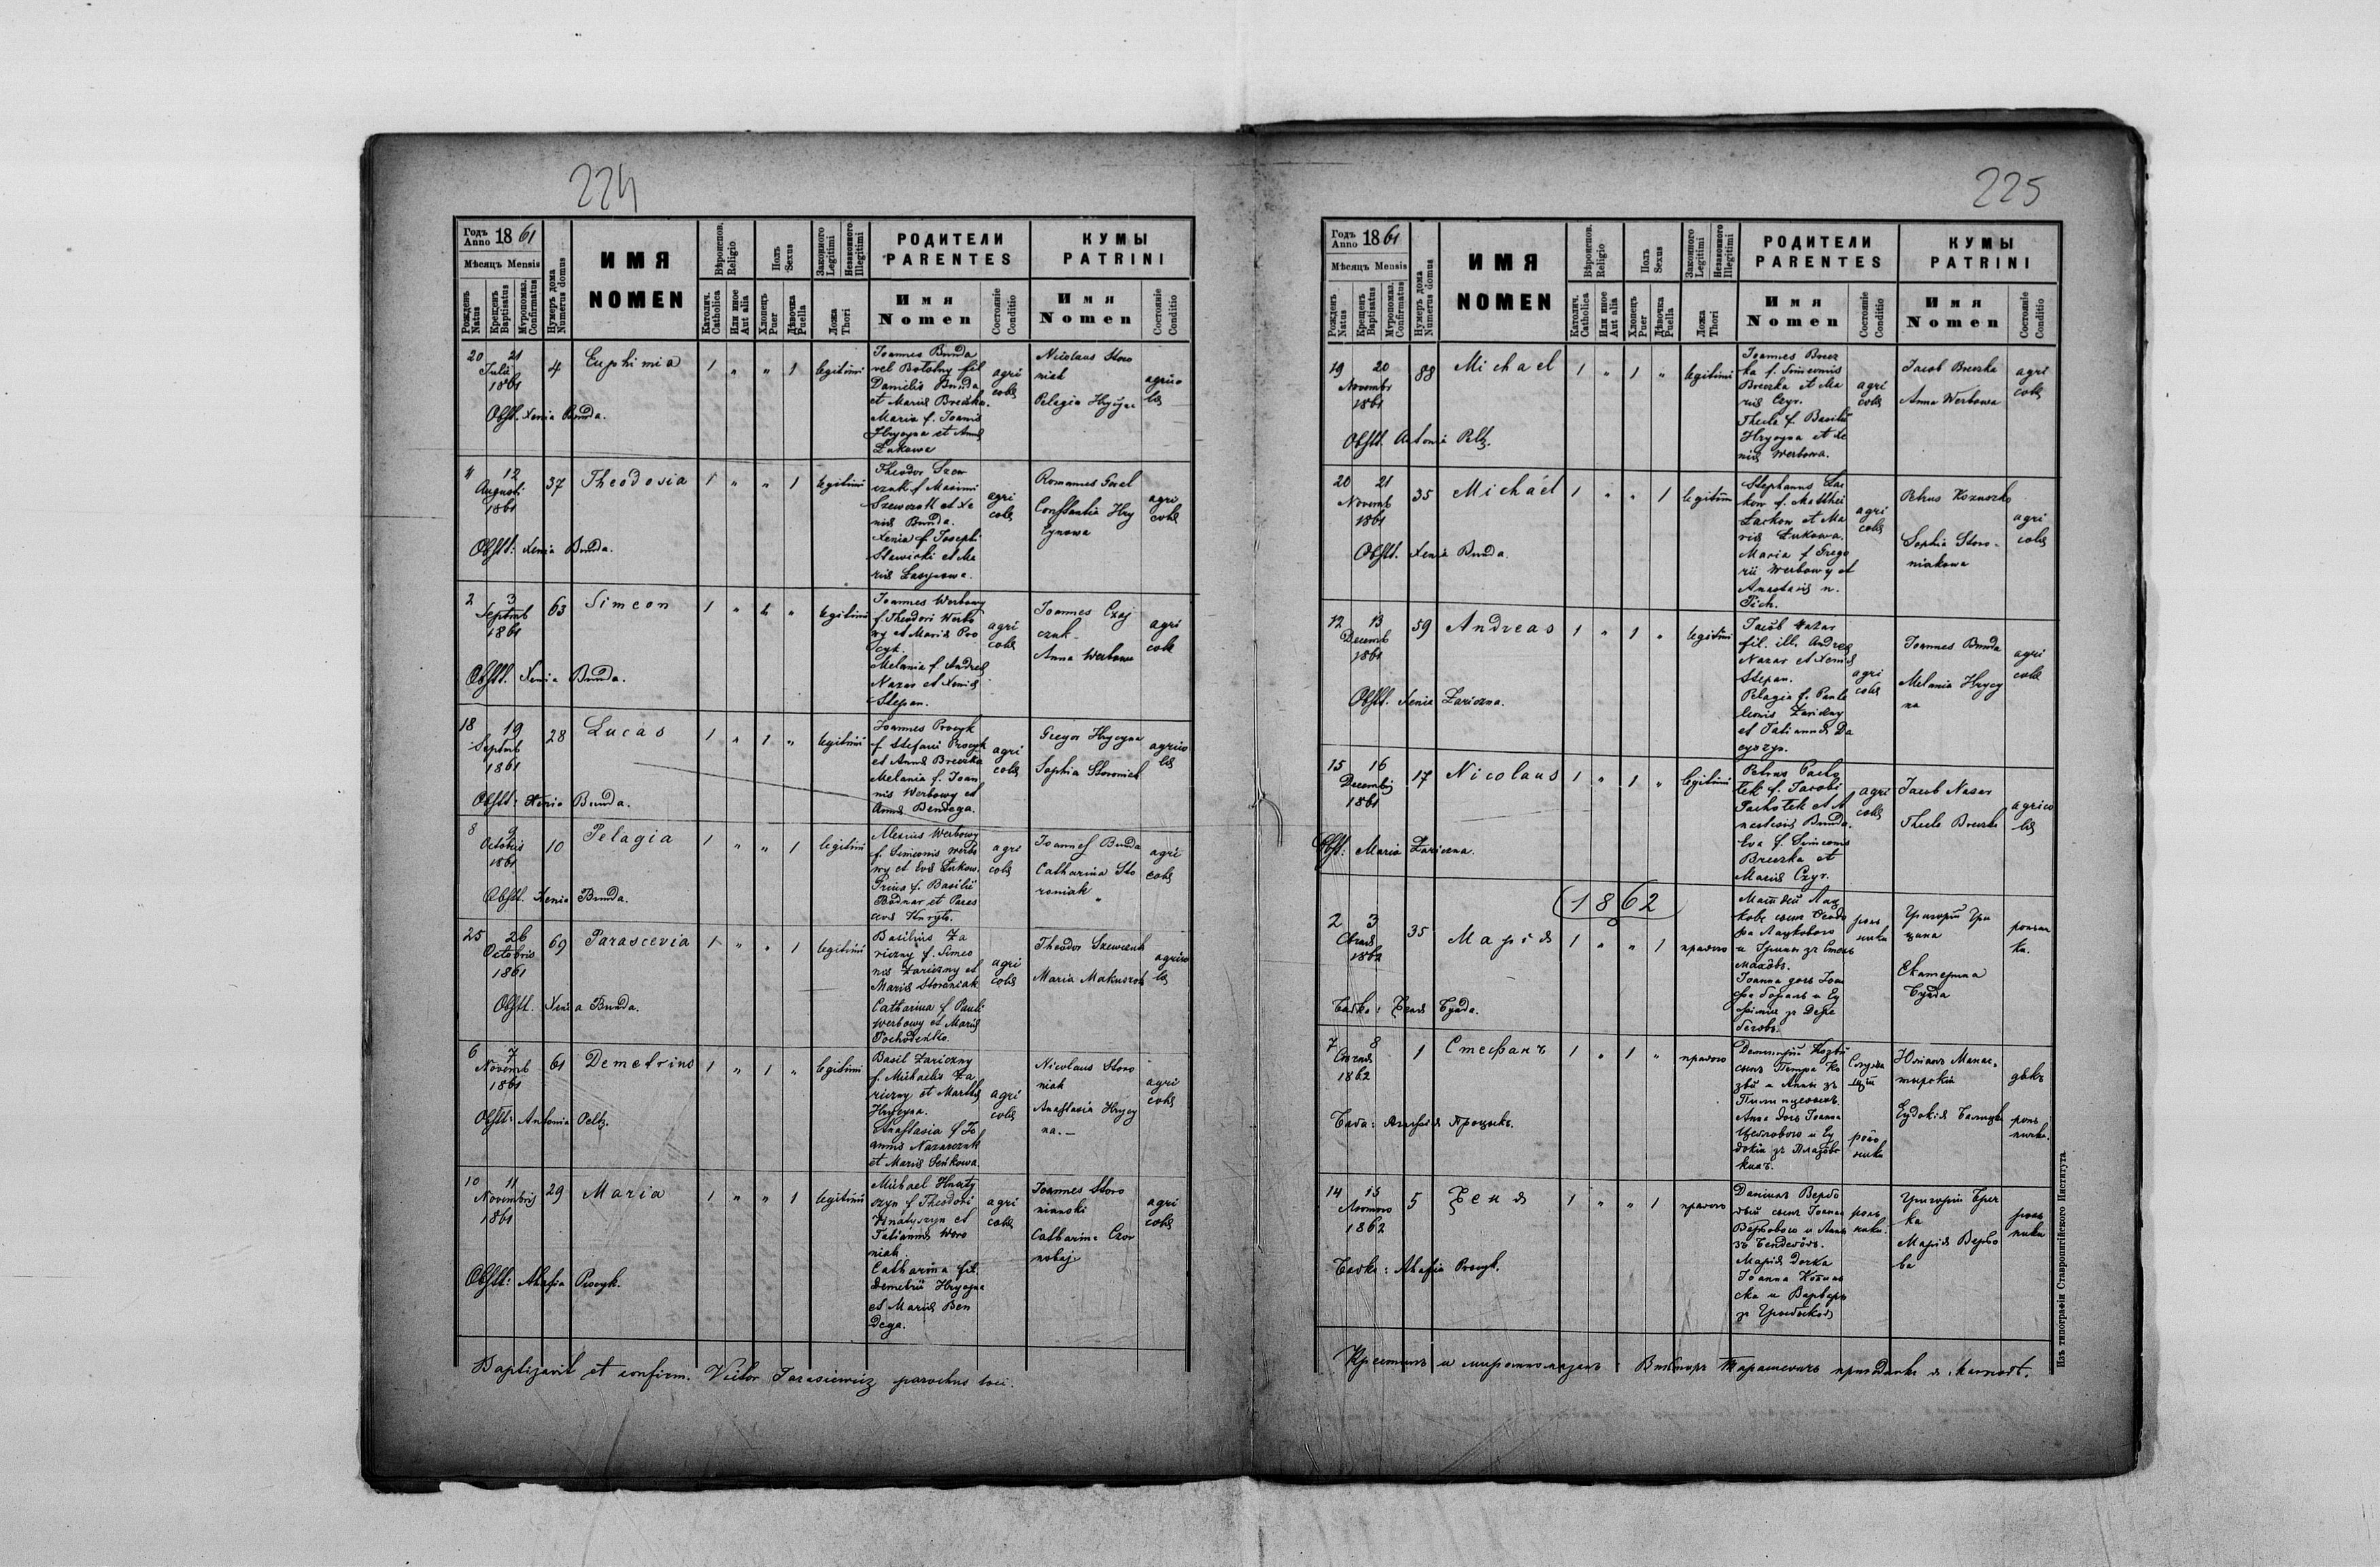 224
Годъ Anno 1861
Мѣсяцъ Mensis
Рожденъ Natus
Крещенъ Baptisatus
Мѵропомаз. Confirmatus
Нумеръ дома Numerus domus
ИМЯ
NOMEN
Вѣроисповѣд. Religio
Католич. Catholica
Или иное Aut alia
Полъ Sexus
Хлопецъ Puer
Дѣвочка Puella
Законного Legitimi
Незаконного Illegitimi
Ложа Thori
РОДИТЕЛИ
PARENTES
Имя
Nomen
Состояніе Conditio
КУМЫ
PATRINI
Имя
Nomen
Состояніе Conditio
20 21
Julii
1861
4
Euphimia
1 " " 1
legitimi
Joannes Bunda
vel Bototny fil
Danielis Bunda
et Mariæ Breczka.
Maria f. Joannis
Hrycyna et Annæ
Łukowa
agri
colæ
Nicolaus Storo
niak
Pelagia Hrycyna
agrico
læ
Obst. Xenia Bunda.
11 12
Augusti
1861
37
Theodosia
1 " " 1
legitimi
Theodor Szew
czuk f. Maximi
Szewczuk et Xe
niæ Bunda.
Xenia f. Josephi
Stawicki et Ma
riæ
agri
colæ
Romanus
Constantia Hry
cynowa
agri
colæ
Obstt: Xenia Bunda.
2 3
Septemb
1861
63
Simeon
1 " 1 "
legitimi
Joannes Werbowy
f. Theodori Werbo
wy et Mariæ Pro
cyk.
Melania f. Andreæ
Nazar et Xeniæ
Stepan.
agri
colæ
Joannes Czaj
czuk
Anna Werbowa
agri
colæ
Obstt. Xenia Bunda.
18 19
Septemb
1861
28
Lucas
1 " 1 "
legitimi
Joannes Procyk
f. Stefani Procyk
et Annæ Breczka
Melania f. Joan
nis Werbowy et
Annæ Bendega.
agri
colæ
Gregor Hrycyna
Sophia Storoniak
agrico
læ
Obstt: Xenia Bunda.
8 9
Octobris
1861
10
Pelagia
1 " " 1
legitimi
Alexius Werbowy
f. Simeonis Werbo
wy et Evæ Łukow.
f. Basilii
Bodnar et Paras
cevæ
agri
colæ
Joannes Bunda
Catharina Sto
roniak
agri
colæ
Obstt. Xenia Bunda.
25 26
Octobris
1861
69
Parascevia
1 " " 1
legitimi
Basilius Za
riczny f. Simeo
nis Zariczny et
Mariæ Storoniak
Catharina f. Pauli
Werbowy et Mariæ
Pochodeńko.
agri
colæ
Theodor Szewczuk
Maria
agrico
læ
Obstt. Xenia Bunda.
6 7
Novemb
1861
61
Demetrius
1 " 1 "
legitimi
Basil Zariczny
f. Michaelis Za
riczny et Marthæ
Hrycyna.
Anastasia f. Jo
annis Nazarczuk
et Mariæ Seńkowa.
agri
colæ
Nicolaus Storo
niak
Anastasia Hrycy
na. —
agri
colæ
Obstt: Antonia Peltz.
10 11
Novembris
1861
29
Maria
1 " " 1
legitimi
Michael Hnaty
szyn f. Theodori
Hnatyszyn et
Tatiannæ Woro
niak.
Catharina fil.
Demetrii Hrycyna
et Mariæ Ben
dega.
agri
colæ
Joannes Storo
nianski
Catharina Czor
nobaj
agri
colæ
Obstt: Ahafia Procyk.
Baptizavit et confirm. Victor Tarasiewicz parochus loci.
225
Годъ Anno 1861
Мѣсяцъ Mensis
Рожденъ Natus
Крещенъ Baptisatus
Мѵропомаз. Confirmatus
Нумеръ дома Numerus domus
ИМЯ
NOMEN
Вѣроисповѣд. Religio
Католич. Catholica
Или иное Aut alia
Полъ Sexus
Хлопецъ Puer
Дѣвочка Puella
Законного Legitimi
Незаконного Illegitimi
Ложа Thori
РОДИТЕЛИ
PARENTES
Имя
Nomen
Состояніе Conditio
КУМЫ
PATRINI
Имя
Nomen
Состояніе Conditio
19 20
Novembr
1861
88
Michael
1 " 1 "
legitimi
Joannes Brecz
ka f. Simeonis
Breczka et Ma
riæ Czyr.
Thecla f. Basilii
Hrycyna et Xe
niæ Werbowa.
agri
colæ
Jacob Breczka
Anna Werbowa
agri
colæ
Obstt. Antonia Peltz.
20 21
Novemb
1861
35
Michaël
1 " " 1
legitimi
Stephanus Łac
kow f. Matthei
Łackow et Ma
riæ Łukowa.
Maria f. Grego
rii Werbowy et
Anastasiæ n.
Pich.
agri
colæ
Petrus
Sophia Storo-
niakowa
agri
colæ
Obstt. Xenia Bunda.
12 13
Decemb
1861
59
Andreas
1 " 1 "
legitimi
Jacob Nazar
fil. ill. Andreæ
Nazar et Xeniæ
Stepan.
Pelagia f. Pante
leonis Zariczny
et Tatiannæ Da
cyszyn.
agri
colæ
Joannes Bunda
Melania Hrycy
na
agri
colæ
Obstt. Xenia Zariczna.
15 16
Decembris
1861
17
Nicolaus
1 " 1 "
legitimi
Petrus Pacho
tek f. Jacobi
Pachotek et A
nastasiæ Bunda.
Eva f. Simeonis
Breczka et
Mariæ Czyr.
agri
colæ
Jacob Nazar
Thecla Breczka
agrico
læ
Obstt: Maria Zariczna.
1862
2 3
Сѣчня
1862
35
Марія
1 " " 1
правого
Матѳей Лац
ковъ сынъ Ѳеодо
ра Лацкового
и Ирины зъ Стома
хôвъ.
Іоанна дочь Іоси
фа и Еу
фиміи зъ Дере
роль
ники
Григорій Гри
цина
Екатерина
Бунда
рольни
ки.
Бабка: Ксеня Бунда.
7 8
Сѣчня
1862
1
Стефанъ
1 " 1 "
правого
Димитрій Козій
сынъ Петра Ко
зій и Анны зъ
Анна дочь Іоанна
и Еу
докіи зъ
Служа
щій
роль
ники
Юліанъ Манас-
тырскій
Еудокія
дякъ
роль
ники.
Баба: Агафія Процыкъ.
14 15
Лютого
1862
5
Ксеня
1 " " 1
правого
Даніилъ Вербо
вый сынъ Іоанна
Вербового и Анны
зъ Бендегôвъ.
Марія дочка
Іоанна
и Варвары
зъ
роль
ники.
Григорій Бреч
ка
Марія Вербо
ва
роль
ники
Бабка: Ahafia Procyk.
Крестилъ и миропомазалъ: Викторъ Тарасевичъ
Изъ типографіи Ставропигійского Института.